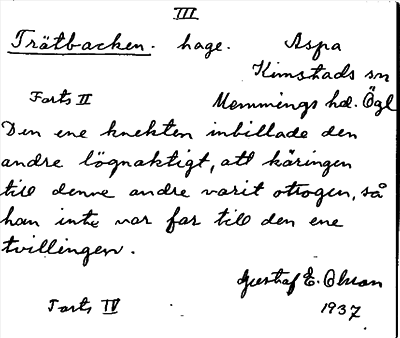 III
Trätbacken. hage. Aspa
Kimstads sn
Forts II Memmings hd. Ögl
Den ene knekten inbillade den
andre lögnaktigt, att käringen
till denne andre varit otrogen, så
han inte var far till den ene
tvillingen.
Gustaf E. Olsson
Forts IV 1937